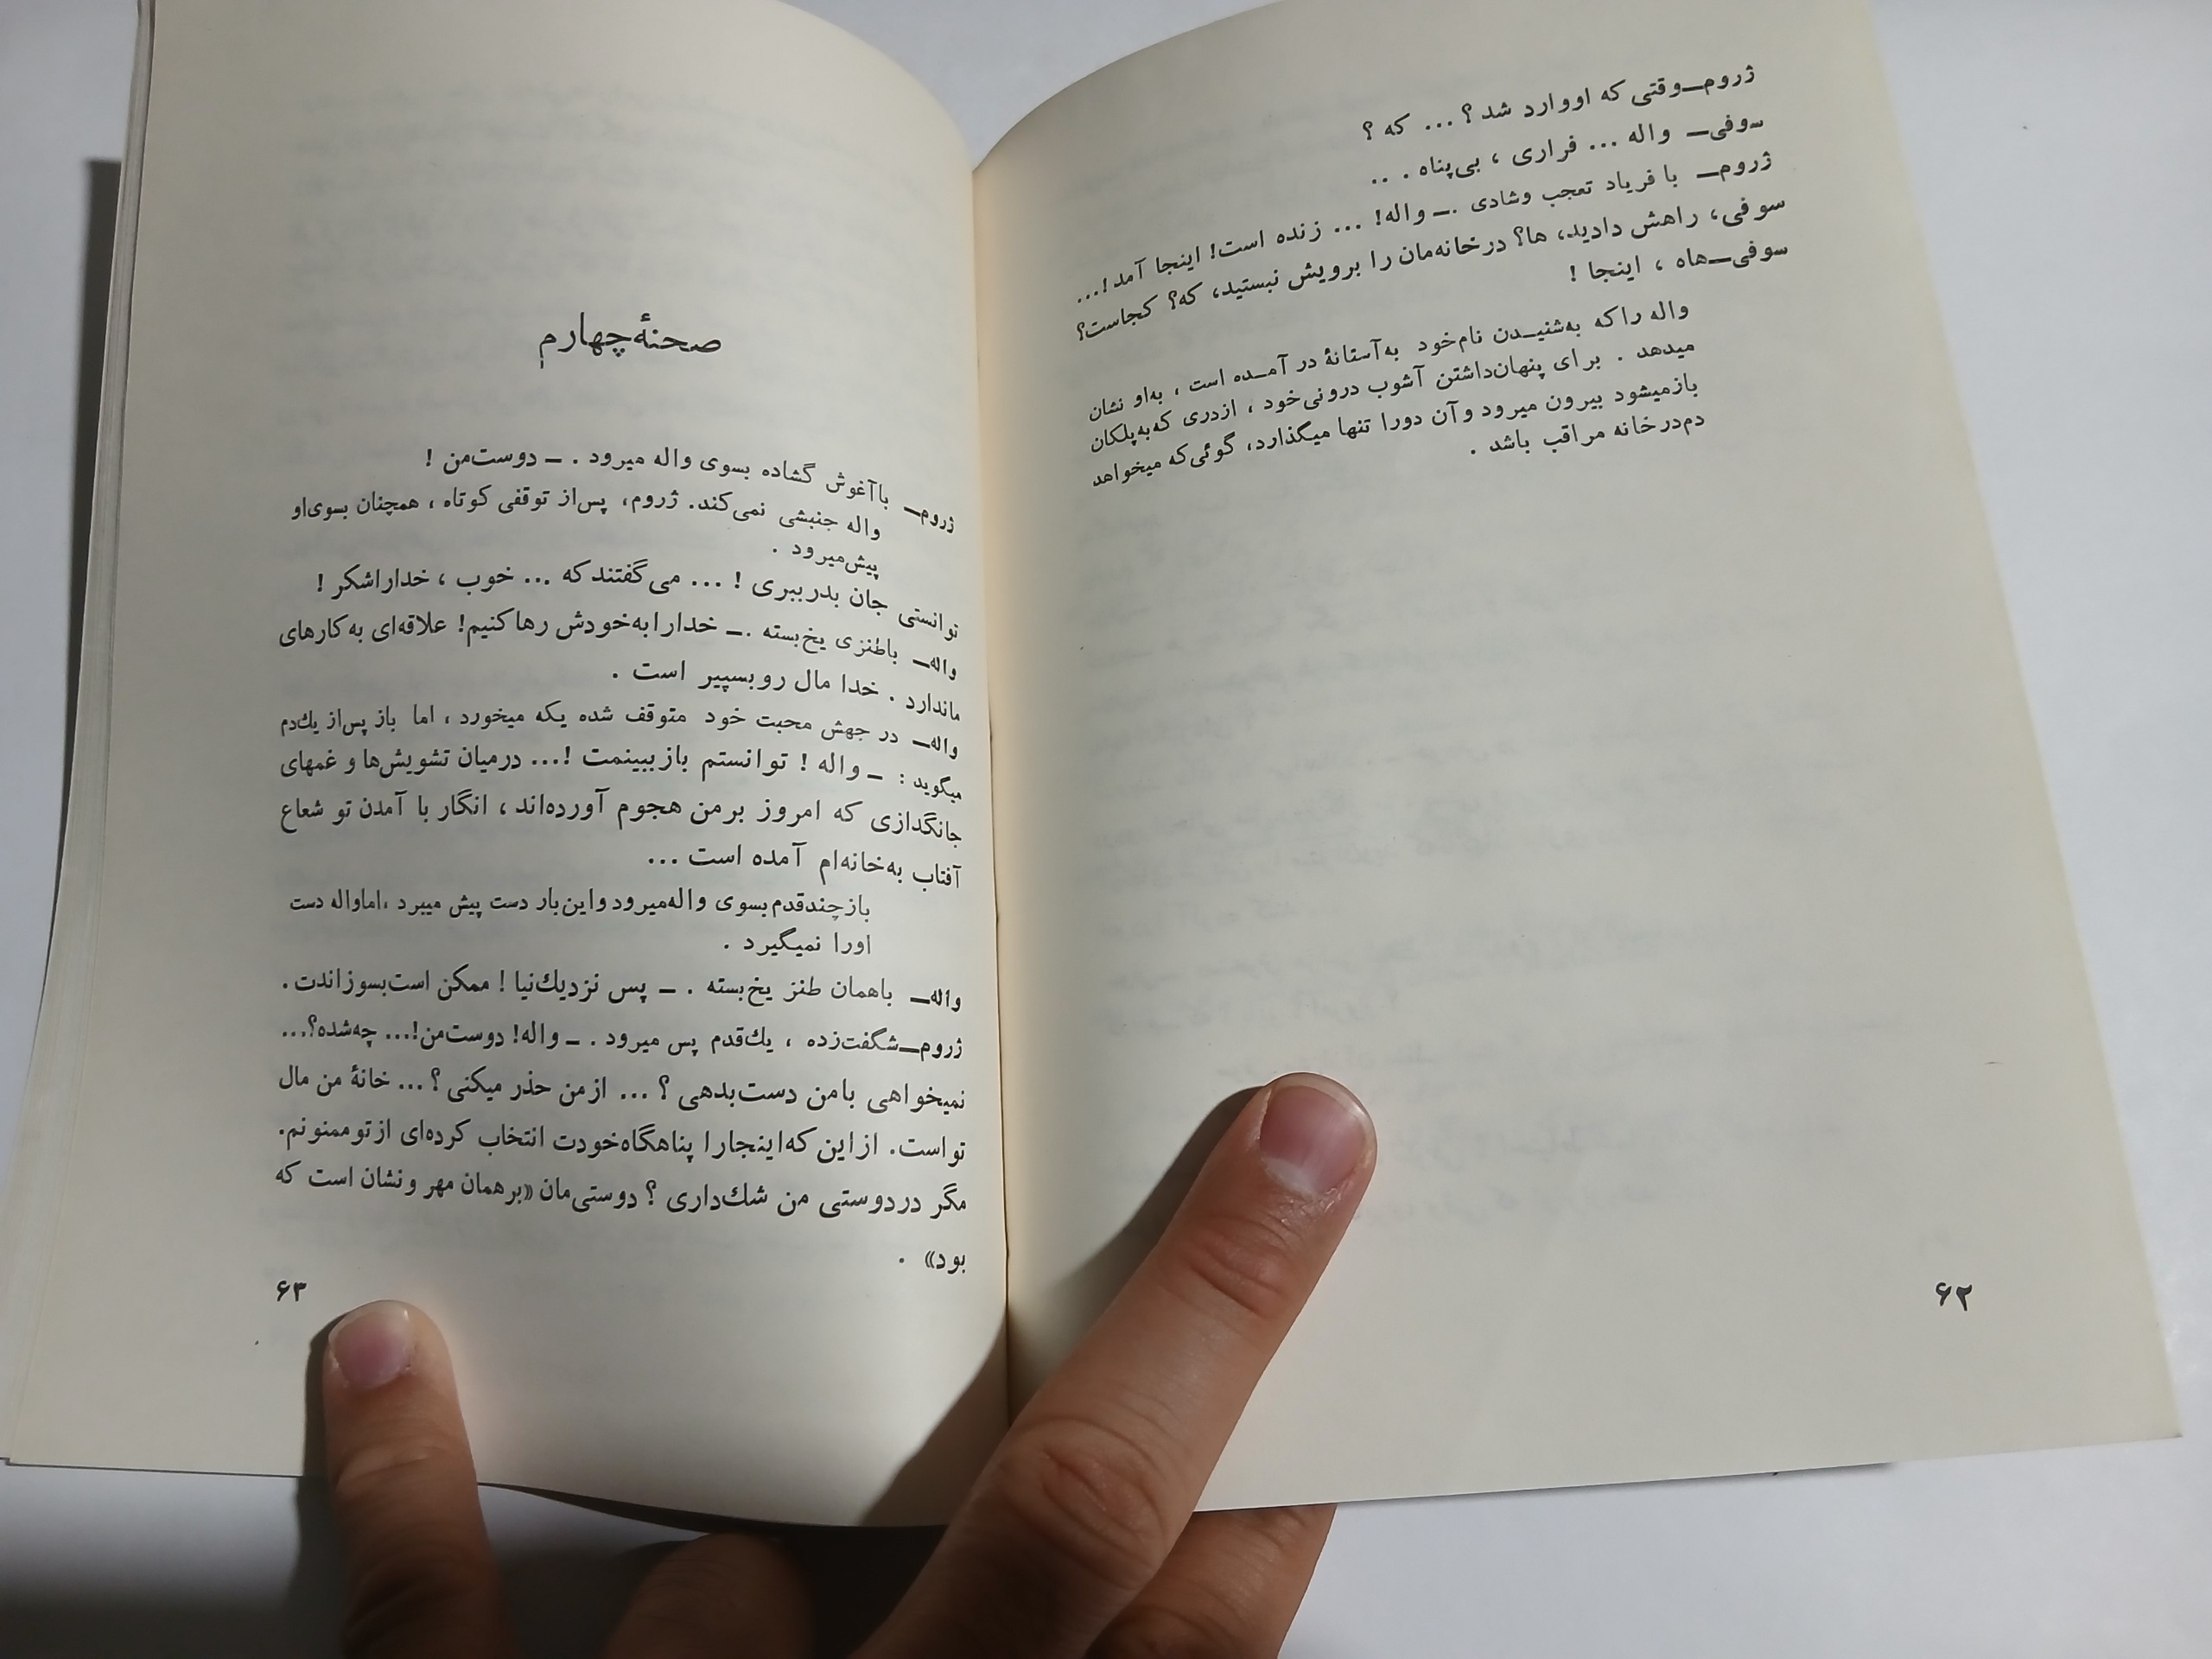 ژروم‌ــ وقتی که او وارد شد ؟ ... که ؟
سوفی‌ــ واله ... فراری ، بی‌پناه . ..
ژروم‌ــ با فریاد تعجب وشادی .ــ واله! ... زنده است! اینجا آمد!...
سوفی، راهش دادید، ها؟ درخانه‌مان را برویش نبستید، که؟ کجاست؟
سوفی‌ــ هاه ، اینجا !
واله راکه به‌شنیدن نام‌خود به‌آستانهٔ در آمده است ، به‌او نشان
میدهد . برای پنهان‌داشتن آشوب درونی‌خود ، ازدری که‌به‌پلکان
بازمیشود بیرون میرود وآن دورا تنها میگذارد، گوئی‌که میخواهد
دم‌درخانه مراقب باشد .
۶۲
صحنهٔ چهارم
ژروم‌ــ باآغوش گشاده بسوی واله میرود . ــ دوست‌من !
واله جنبشی نمی‌کند. ژروم، پس‌از توقفی کوتاه ، همچنان بسوی‌او
پیش‌میرود .
توانستی جان بدرببری ! ... می‌گفتندکه ... خوب ، خداراشکر !
واله‌ــ باطنزی یخ‌بسته .ــ خدارابه‌خودش رهاکنیم! علاقه‌ای به‌کارهای
ماندارد . خدا مال روبسپیر است .
واله‌ــ در جهش محبت خود متوقف شده یکه میخورد ، اما باز پس‌از یك‌دم
میگوید : ــ واله ! توانستم بازببینمت !... درمیان تشویش‌ها و غمهای
جانگدازی که امروز برمن هجوم آورده‌اند ، انگار با آمدن تو شعاع
آفتاب به‌خانه‌ام آمده است ...
بازچندقدم بسوی واله‌میرود واین‌بار دست پیش میبرد ،اماواله دست
اورا نمیگیرد .
واله‌ــ باهمان طنز یخ‌بسته . ــ پس نزدیك‌نیا ! ممکن است‌بسوزاندت.
ژروم‌ــ شگفت‌زده ، یك‌قدم پس میرود . ــ واله! دوست‌من!... چه‌شده؟...
نمیخواهی بامن دست‌بدهی ؟ ... ازمن حذر میکنی ؟ ... خانهٔ من مال
تواست. ازاین که‌اینجارا پناهگاه‌خودت انتخاب کرده‌ای ازتوممنونم.
مگر دردوستی من شك‌داری ؟ دوستی‌مان «برهمان مهر ونشان است که
بود» .
۶۳